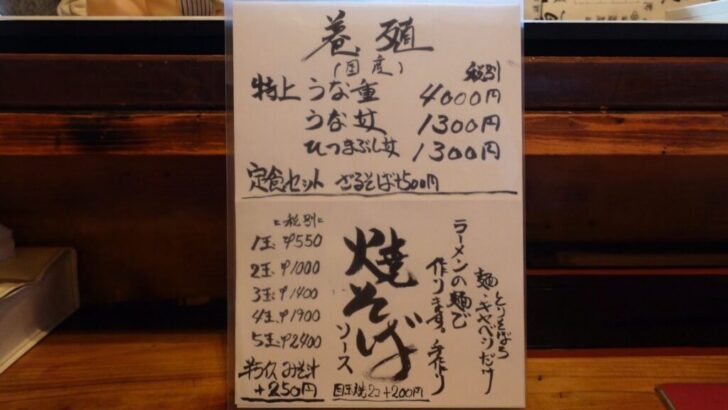 養殖
(国産)
税別
特上 うな重 4000円
うな丼 1300円
ひつまぶし丼 1300円
定食セット ざるそば+500円
とりそばろ
麺・キャベツだけ
ラーメンの麺で
作ります。手作り
焼そば
ソース
税別
1玉 ¥550
2玉 ¥1000
3玉 ¥1400
4玉 ¥1900
5玉 ¥2400
半ライス みそ汁
+250円
目玉焼2コ+200円